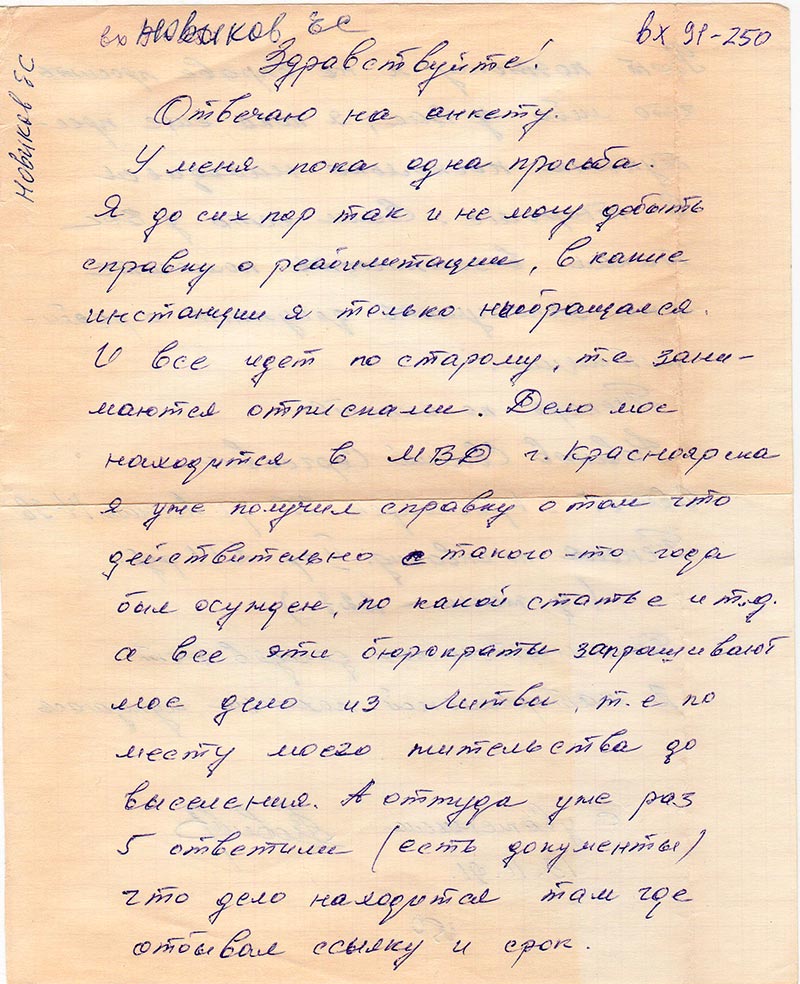 Новиков ЕС
вх 91-250
Новиков ЕС
Здравствуйте!
Отвечаю на анкету.
У меня пока одна просьба.
Я до сих пор так и не могу добыть
справку о реабилитации, в какие
инстанции я только не обращался.
И все идет по старому, т.е зани-
маются отписками. Дело мое
находится в МВД г. Красноярска
я уже получил справку о том что
действительно с такого-то года
был осужден, по какой статье и т.д.
а все эти бюрократы запрашивают
мое дело из Литвы, т.е по
месту моего жительства до
выселения. А оттуда уже раз
5 ответили (есть документы)
что дело находится там где
отбывал ссылку и срок.